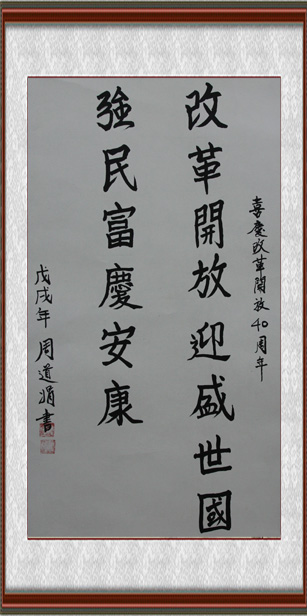 喜慶改革開放40周年
改革開放迎盛世國
強民富慶安康
戊戌年 周道娟書